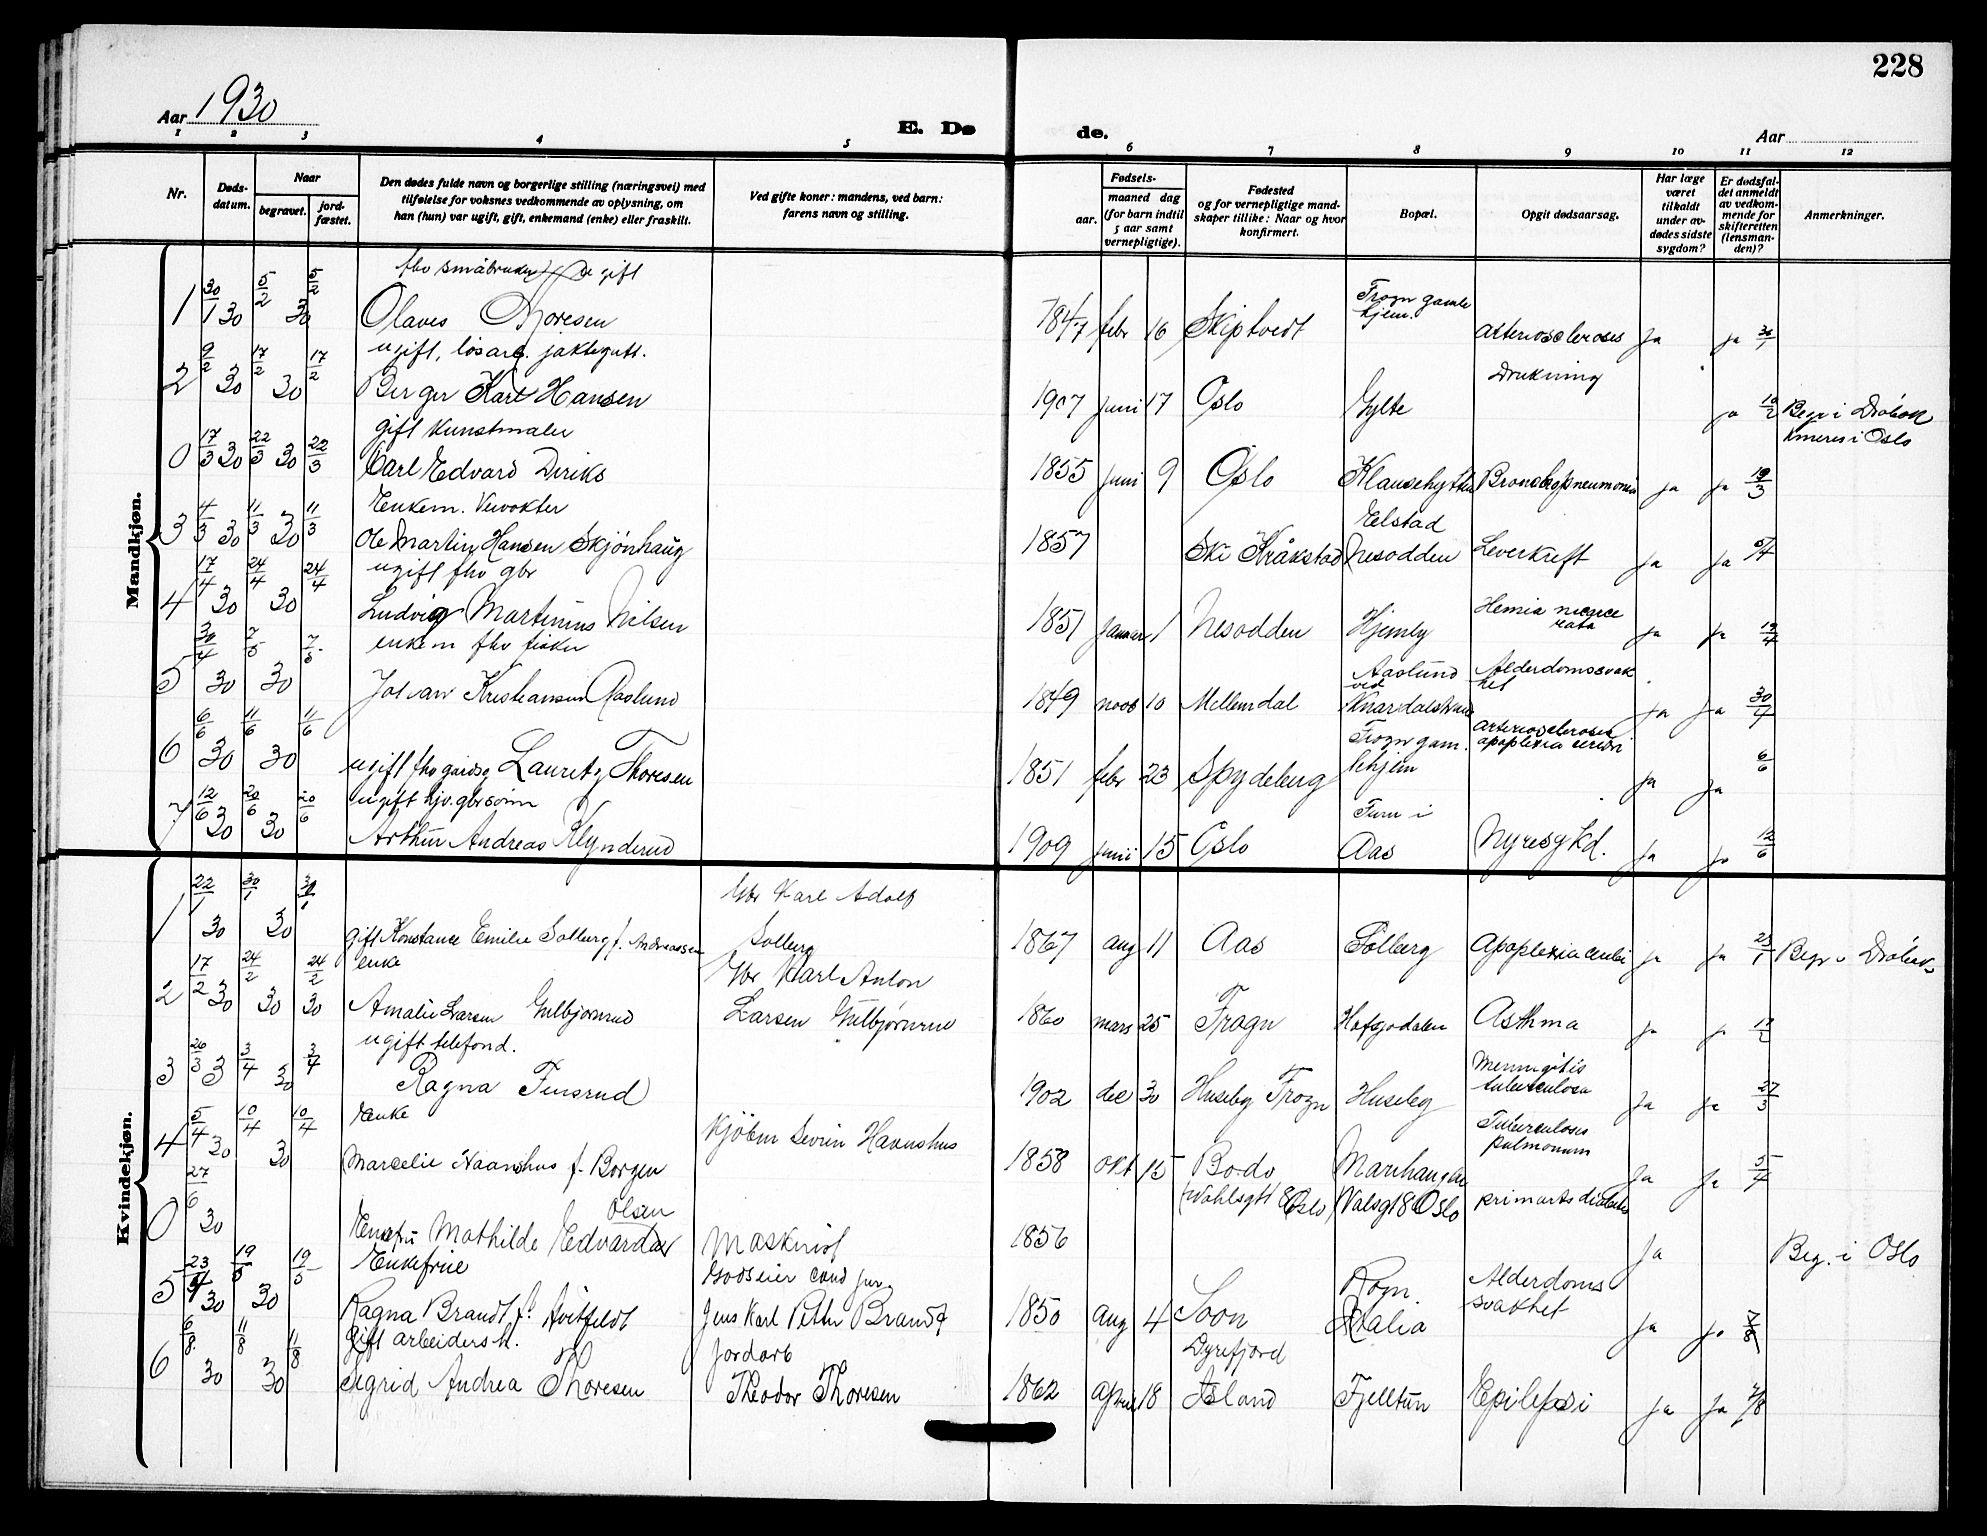 228
Aar 1930
E. Dø
de.
Aar
1 2 3 4 5 6 7 8 9 10 11 12
Nr.
Døds-
datum.
Naar
begravet.
jord-
fæstet.
Den dødes fulde navn og borgerlige stilling (næringsvei) med
tilføielse for voksnes vedkommende av oplysning, om
han (hun) var ugift, gift, enkemand (enke) eller fraskilt.
Ved gifte koner: mandens, ved barn:
farens navn og stilling.
Fødsels-
aar.
maaned dag
(for barn indtil
5 aar samt
vernepligtige).
Fødested
og for vernepligtige mand-
skaper tillike: Naar og hvor
konfirmert.
Bopæl.
Opgit dødsaarsag.
Har læge
været
tilkaldt
under av-
dødes sidste
sygdom?
Er dødsfal-
det anmeldt
av vedkom-
mende for
skifteretten
(lensman-
den)?
Anmerkninger.
Mandkjøn.
fhv småbruker gift
1 30/1 30 5/2 30 5/2 Olaves Thoresen 1847 febr 16 Skiptvedt Frogn gamle hjem. arteriosclerosis Ja ja 30/1
ugift, løsarb. jaktegutt.
2 9/2 30 17/2 30 17/2 Birger Karl Hansen 1907 juni 17 Oslo Gylte Drukning ja 10/2 Begr i Drøbak
gift kunstmaler
0 17/3 30 22/3 30 22/3 Carl Edvard Diriks 1855 juni 9 Oslo Klausehytten Bronchopneumonia ja ja 19/3 kmeres i Oslo
Enkem. Vevokter
3 4/3 30 11/3 30 11/3 Ole Martin Hansen Skjönhaug 1857 Ski Kråkstad Elstad Nesodden Leverkreft ja ja 5/4
ugift fhv gbr
4 17/4 30 24/4 30 24/4 Ludvig Martinius Nilsen 1851 januar 1 Nesodden Hjemly Hernia ja ja 19/4
enkem fhv fisker
5 30/4 30 7/5 30 7/5 Johan Kristiansen Aaslund 1849 novb 10 Mellemdal Aaslund ved Knardalstrand Alderdomssvakhet ja ja 30/4
6 6/6 30 11/6 30 11/6 ugift fhv gårdsg Lauritz Thoresen 1851 febr 23 Spydeberg Frogn gam. lehjem arteriosclerosis apoplexia cerebri ja ja 6/6
ugift hjv. gbrsönn
7 12/6 30 20/6 30 20/6 Arthur Andreas Klynderud 1909 juni 15 Oslo Furu i Aas Nyresykd. ja ja 12/6
Kvindekjøn.
Gbr Karl Adolf
1 22/1 30 30/1 30 30/1 gift Konstance Emilie Solberg f. Andreassen Solberg 1867 aug 11 Aas Solberg Apoplexia cerebri ja ja 23/1 Begr i Drøbak
enke Gbr Karl Anton
2 17/2 30 24/2 30 24/2 30 Amalie Larsen Gulbjørnrud Larsen Gulbjørnrud 1860 mars 25 Frogn Hofgodalen Asthma ja ja 17/2
ugift telefond.
3 26/3 3 3/4 30 3/4 Ragna Finsrud 1902 dec 30 Huseby Frogn Huseby Meningitis tuberculosa Ja ja 27/3
Enke
4 5/4 30 10/4 30 10/4 Marcelie Haanshus f. Borgen Kjöbm Sevrin Havnshus 1858 okt 15 Bodo Marihaugen Tuberculosis pulmonum Ja Ja 5/4
(Wahlsgt 8 Oslo)
27/6 Olsen
0 30 Enkefru Mathilde Edvarda Maskinist 1856 Walsg 18 Oslo primarts diabetes Ja Beg. i Oslo
Enkefrue Godseier cand jur.
5 23/4 30 19/5 30 19/5 Ragna Brandt f. Hvitfeldt Jens Karl Petter Brandt 1850 aug 4 Soon Rogn. Dalia Alderdoms svakhet ja jo 7/8
gift arbeidersk. Jordarb
6 6/8 30 11/8 30 11/8 Sigrid Andrea Thoresen Theodor Thoresen 1862 april 18 Dyrefjord Island Fjelltun Epilepsi ja Ja 7/8